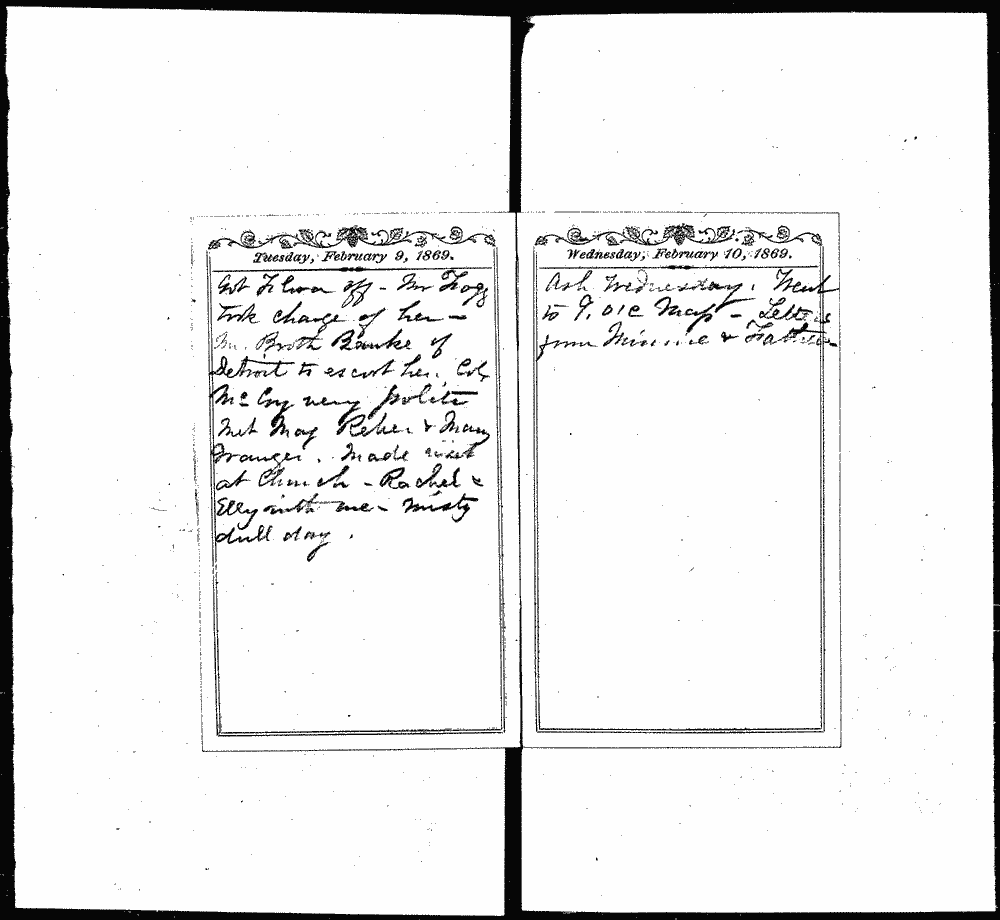 Tuesday, February 9, 1869.
Got off - Mr Fogg
took charge of her -
Mr. Broth of
Detroit to escort her. Col.
McCoy very polite
Met May Reher & Mary
Granger. Made visit
at Church - Rachel &
Elly with me - misty
dull day.
Wednesday, February 10, 1869.
Ash Wednesday. Went
to 9. O'lC Mass - Letters
from Minnie & Father -